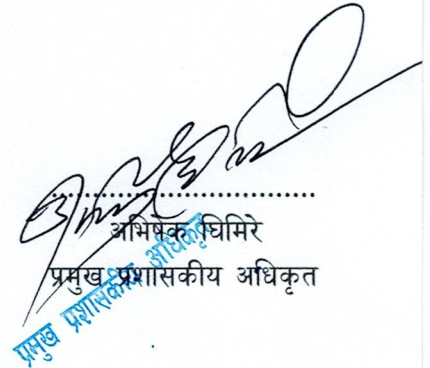 ..............................
अभिषेक घिमिरे
प्रमुख प्रशासकीय अधिकृत
प्रमुख प्रशासकीय अधिकृत